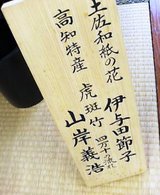 土佐和紙の花
伊与田節子
高知特産
虎斑竹
四万十流れ
山岸義浩